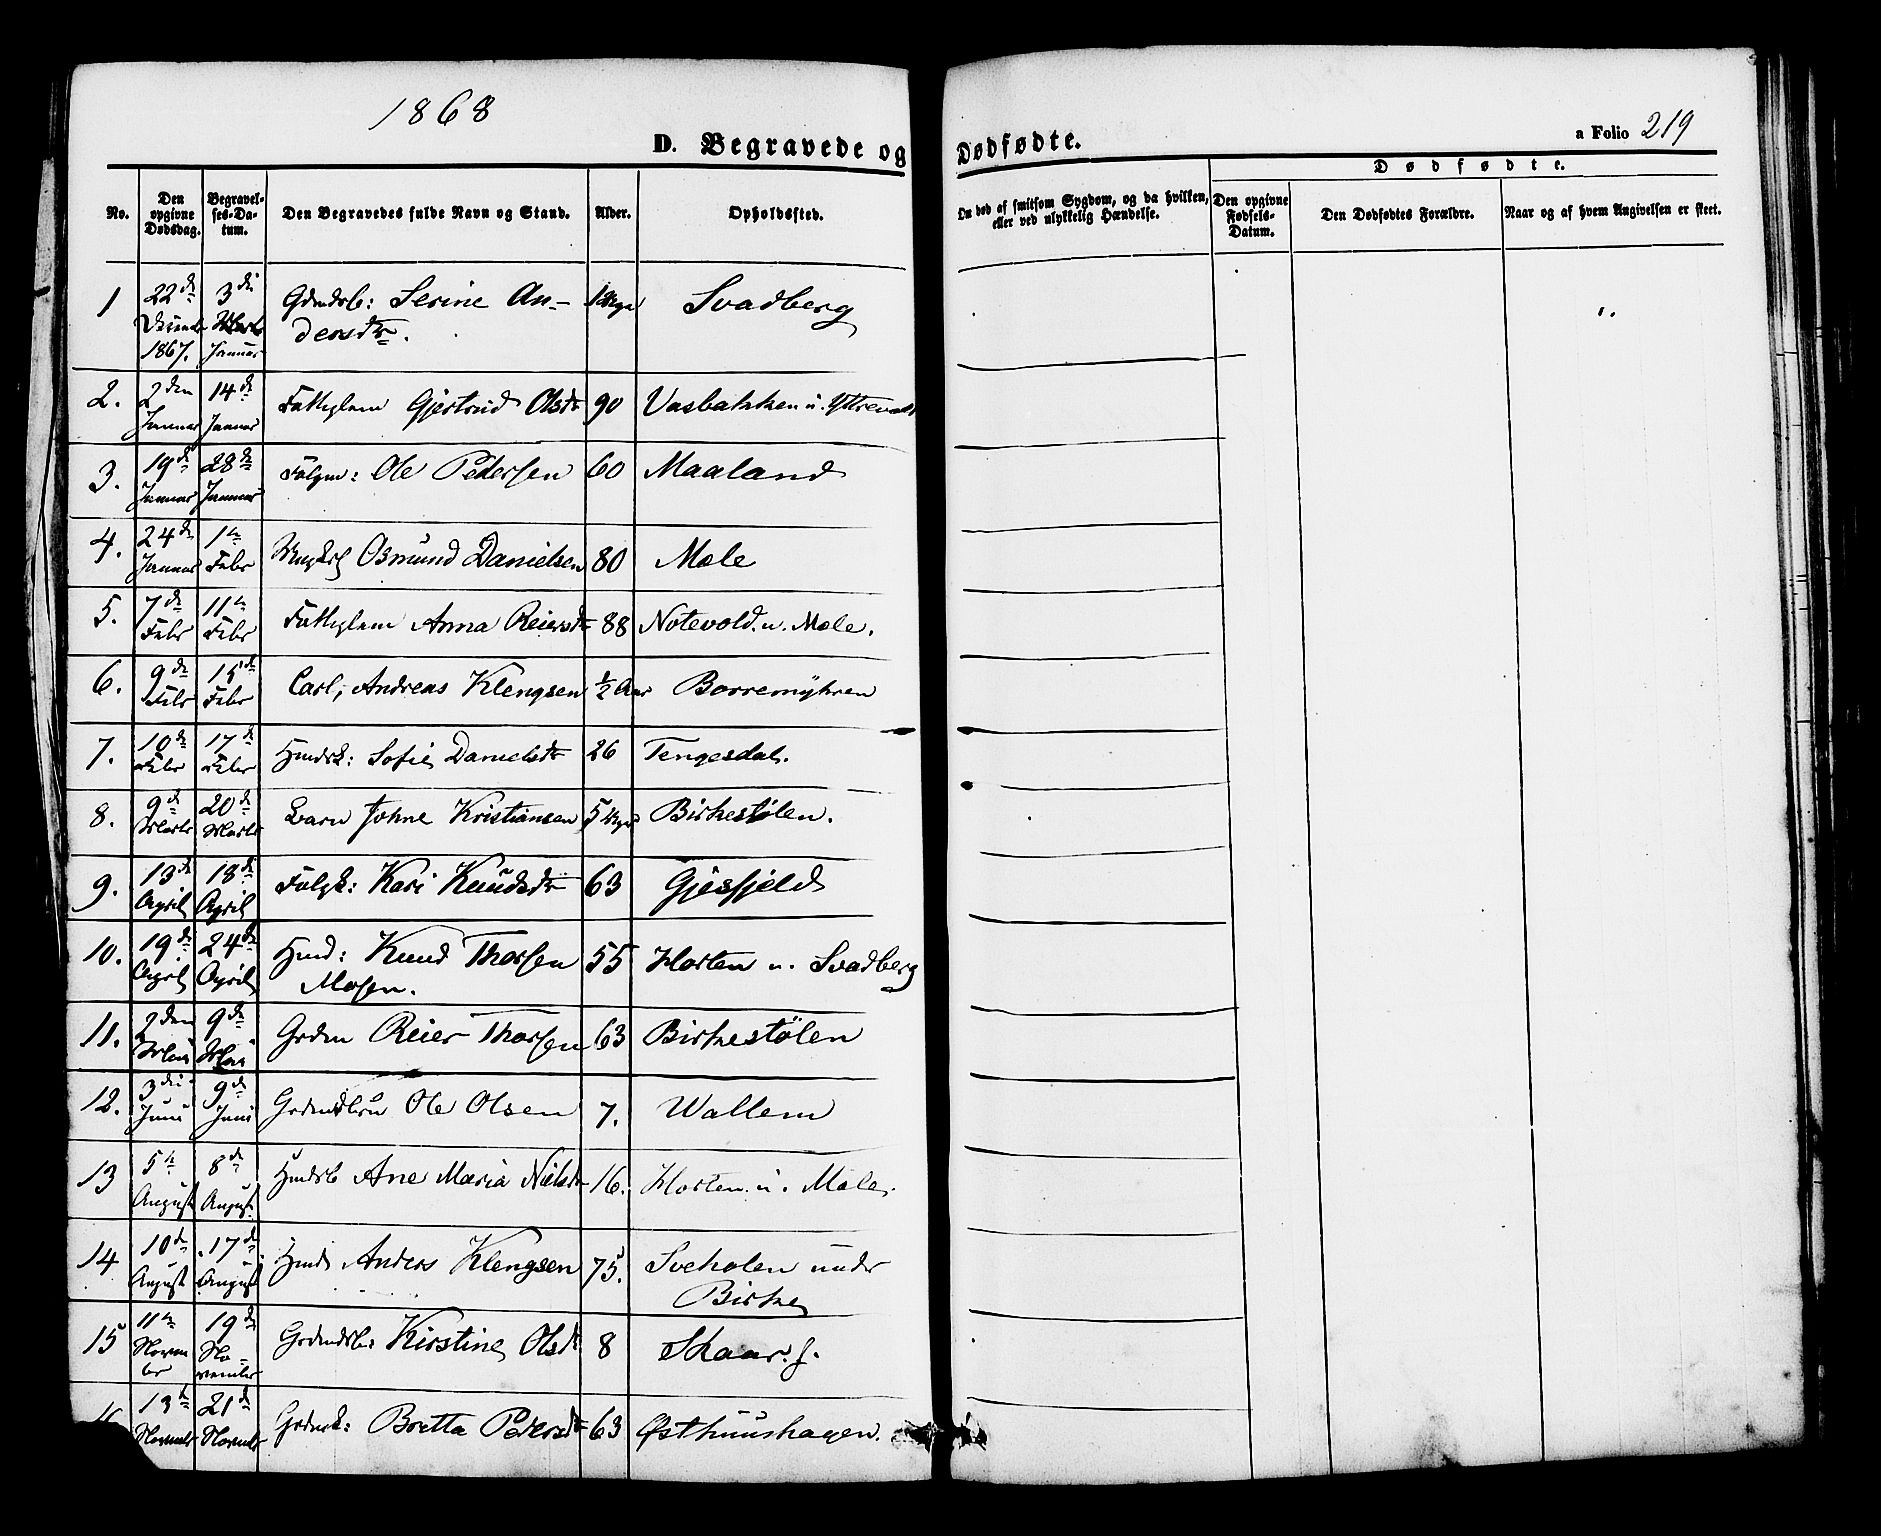 1868
D. Begravede og Dødfødte.
a Folio 219
No.
Den opgivne Dødsdag.
Begravelses-Datum.
Den Begravedes fulde Navn og Stand.
Alder.
Opholdssted.
Om død af smitsom Sygdom, og da hvilken,
eller ved ulykkelig Hændelse.
Dødfødte.
Den opgivne Fødsels-Datum.
Den Dødfødtes Forældre.
Naar og af hvem Angivelsen er skeet.
1 22de 1867. 3die Januar Serine An-
dersdtr. Svadberg
2. 2den Januar 14de Januar Fattiglem Gjertrud Olsdtr 90 Vasbakken u.
3. 19de Januar 28de Januar Ole Pedersen 60 Maaland
4. 24de Januar 1ste Febr Osmund Danielsen 80 Mæle
5. 7de Febr 11te Febr Fattiglem Anna Reiersdtr 88 Notevold u. Mæle.
6. 9de Febr 15de Febr Carl Andreas Klengsen 1/2 Aar Borremyhren
7. 10de Febr 17de Febr Hmdsk: Sofie Danielsdtr 26 Tengesdal.
8. 9de Marts 20de Marts Barn Johne Kristiansen 5 Birkestølen.
9. 13de April 18de April Kari Knudsdtr 63 Gjesfjeld
10. 19de April 24de April Hmd: Knud Thorsen 55 Horten u. Svadberg
Mosen.
11. 2den Mai 9de Mai Grdm Reier Thorsen 63 Birkestølen
12. 3die Juni 9de Juni Ole Olsen 7. Wallem
13 5te August 8de August Hmdsb Ane Maria Nielsdtr 16. Horten u. Mæle.
14 10de August 17de August Hmd Anders Klengsen 75. Sveholen under
Birke
15 11te Novem
br 19de No-
vember Kirstine Olsdtr 8 Skaar.
13de Novembr 21de Novembr Bretta Pedersdtr 63 Østhuushagen.